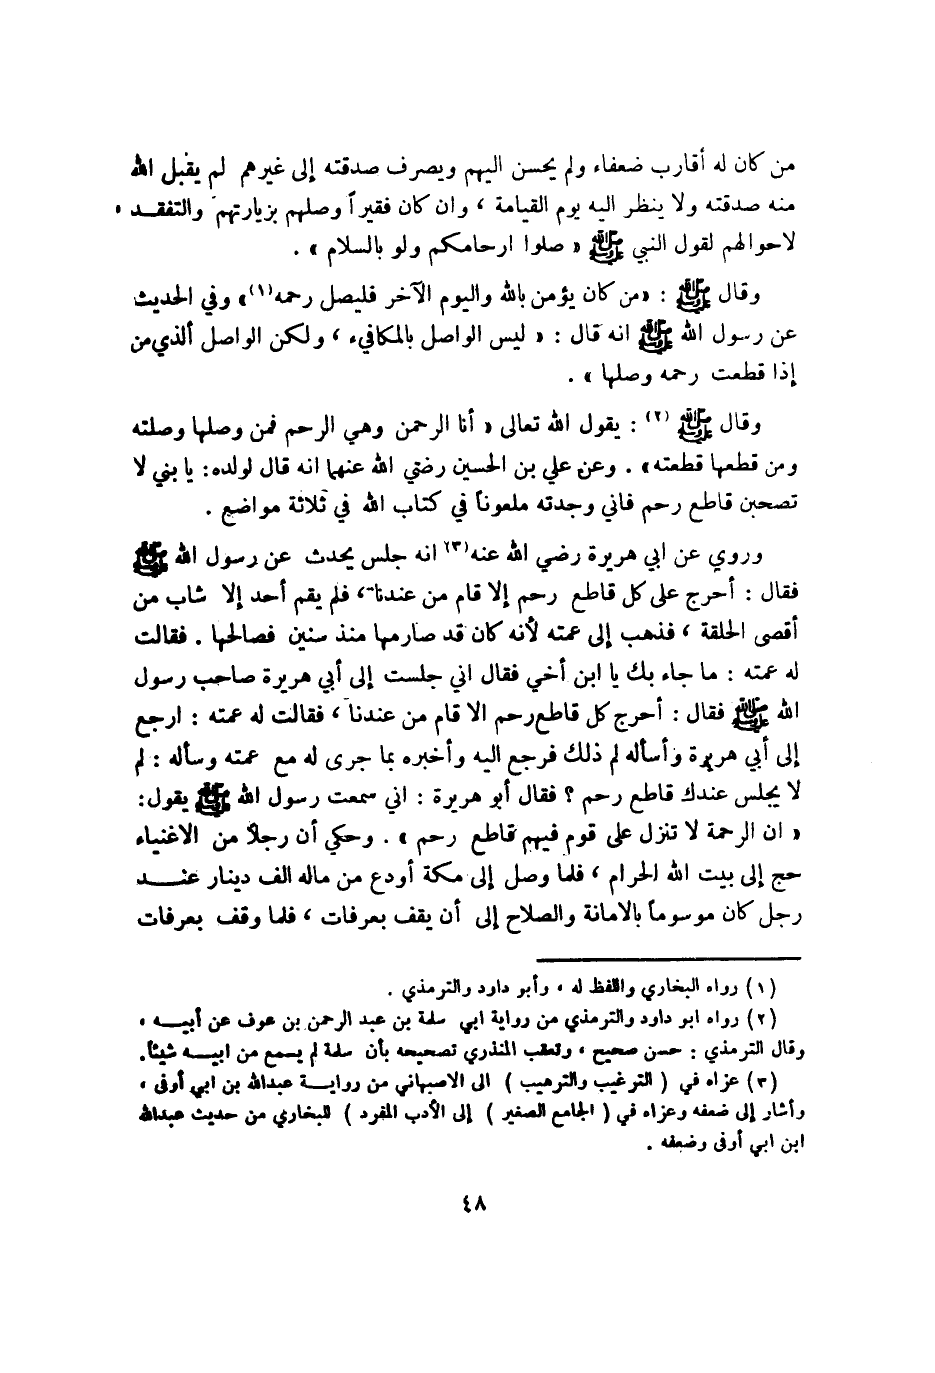 من كان له أقارب ضعفاء ولم يحسن اليهم ويصرف صدقته إلى غيرهم لم يقبل الله
منه صدقته ولا ينظر اليه يوم القيامة ، وان كان فقيراً وصلهم بزيارتهم والتفقـــد
لاحوالهم لقول النبي ﷺ « صلوا ارحامكم ولو بالسلام » .
وقال ﷺ : «من كان يؤمن بالله واليوم الآخر فليصل رحمه(١)» وفي الحديث
عن رسول الله ﷺ انه قال : « ليس الواصل بالمكافيء ، ولكن الواصل ألذي من
إذا قطعت رحمه وصلها » .
وقال ﷺ (٢) : يقول الله تعالى « أنا الرحمن وهي الرحم فمن وصلها وصلته
ومن قطعها قطعته» . وعن علي بن الحسين رضي الله عنهما انه قال لولده: يا بني لا
تصحبن قاطع رحم فاني وجدته ملعوناً في كتاب الله في ثلاثة مواضع .
وروي عن ابي هريرة رضي الله عنه(٣) انه جلس يحدث عن رسول الله ﷺ
فقال : أحرج على كل قاطع رحم إلا قام من عندنا ، فلم يقم أحد إلا شاب من
أقصى الحلقة ، فذهب إلى عمته لأنه كان قد صارمها منذ سنين فصالحها . فقالت
له عمته : ما جاء بك يا ابن أخي فقال اني جلست إلى أبي هريرة صاحب رسول
الله ﷺ فقال : أحرج كل قاطع رحم الا قام من عندنا ، فقالت له عمته : ارجع
إلى أبي هريرة وأسأله لم ذلك فرجع اليه وأخبره بما جرى له مع عمته وسأله : لم
لا يجلس عندك قاطع رحم ؟ فقال أبو هريرة : اني سمعت رسول الله ﷺ يقول:
« ان الرحمة لا تنزل على قوم فيهم قاطع رحم » . وحكي أن رجلاً من الاغنياء
حج إلى بيت الله الحرام ، فلما وصل إلى مكة أودع من ماله الف دينار عنـــد
رجل كان موسوماً بالامانة والصلاح إلى أن يقف بعرفات ، فلما وقف بعرفات
(١) رواه البخاري واللفظ له ، وأبو داود والترمذي .
(٢) رواه ابو داود والترمذي من رواية ابي سلمة بن عبد الرحمن بن عوف عن أبيـــه ،
وقال الترمذي : حسن صحيح ، وتعقب المنذري تصحيحه بأن سلمة لم يسمع من ابيـــه شيئاً.
(٣) عزاه في ( الترغيب والترهيب ) الى الاصبهاني من روايـــة عبدالله بن ابي أوفى ،
وأشار إلى ضعفه وعزاه في ( الجامع الصغير ) إلى الأدب المفرد ) للبخاري من حديث عبدالله
ابن ابي أوفى وضعفه .
٤٨